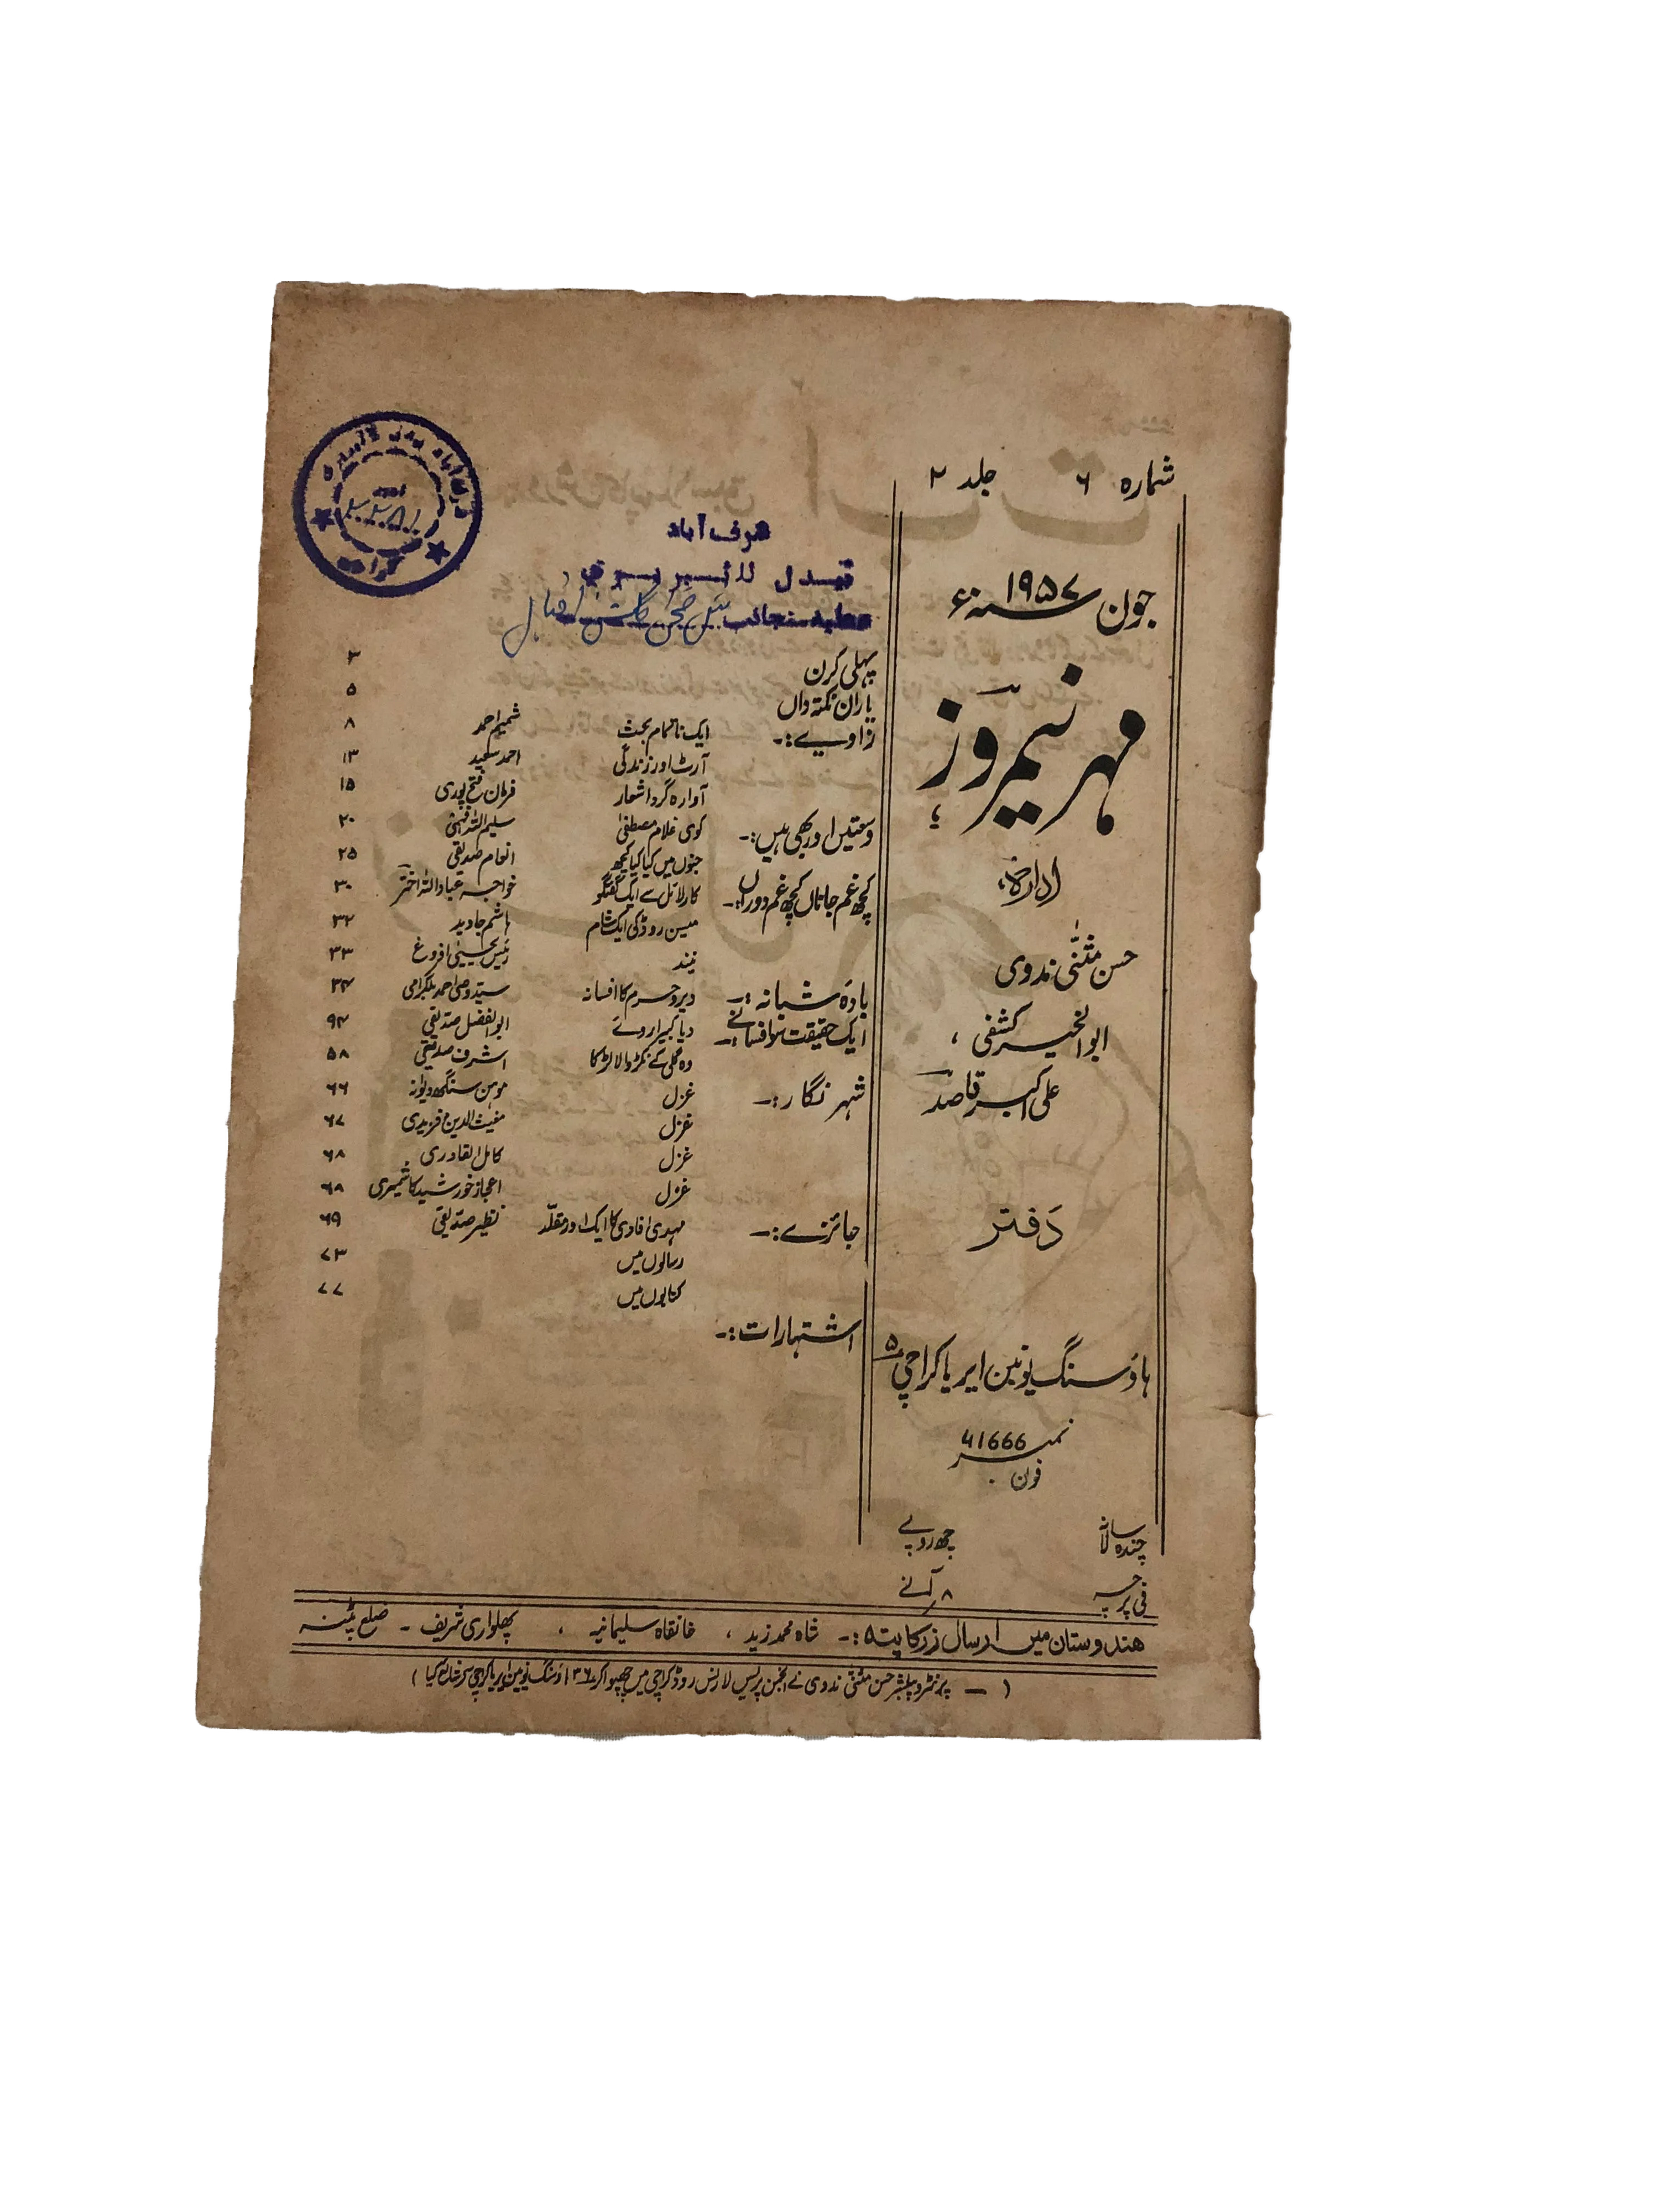 شمارہ ۶ جلد ۲
جون ۱۹۵۷ سنہ ء
مہر نیمروز
ادارہ
حسن مثنیٰ ندوی
ابوالخیر کشفی ،
علی اکبر قاصد
دفتر
ہاؤسنگ یونین ایریا کراچی ۵
نمبر 41666
فون
چندہ سالانہ چھ روپے
فی پرچہ ۸ر آنے
شرف آباد
عطیہ منجانب
پہلی کرن ۳
یاران نکتہ داں ۵
زاویے:۔ ایک ناتمام بحث شمیم احمد ۸
آرٹ اور زندگی احمد سعید ۱۳
آوارہ گرد اشعار فرمان فتح پوری ۱۵
وسعتیں اور بھی ہیں:۔ کوی غلام مصطفیٰ سلیم اللہ فہمی ۲۰
جنوں میں کیا کیا کچھ انعام صدیقی ۲۵
کچھ غم جاناں کچھ غم دوراں:۔ کارلائل سے ایک گفتگو خواجہ عباداللہ اختر ۳۰
میسن روڈ کی ایک شام ہاشم جاوید ۳۲
نیند رئیس یحییٰ افروغ ۳۳
بادۂ شبانہ:۔ دیر و حرم کا افسانہ سید وصی احمد بلگرامی ۳۴
ایک حقیقت سو افسانے:۔ دیا کبیرا روئے ابوالفضل صدیقی ۹۴
وہ گلی کے نکڑ والا لڑکا اشرف صدیقی ۵۸
شہر نگار:۔ غزل موہن سنگھ دیوانہ ۶۶
غزل مغیث الدین فریدی ۶۷
غزل کامل القادری ۶۸
غزل اعجاز خورشید کاشمیری ۶۸
جائزے:۔ مہدی افادی کا ایک اور مقلد نظیر صدیقی ۶۹
رسالوں میں ۷۳
کتابوں میں ۷۷
اشتہارات:۔
ہندوستان میں ارسال زر کا پتہ:۔ شاہ محمد زید ، خانقاہ سلیمانیہ ، پھلواری شریف ۔ ضلع پٹنہ
( — پرنٹر و پبلشر حسن مثنیٰ ندوی نے انجمن پریس لارنس روڈ کراچی میں چھپوا کر ۳۶ ہاؤسنگ یونین ایریا کراچی سے شائع کیا )